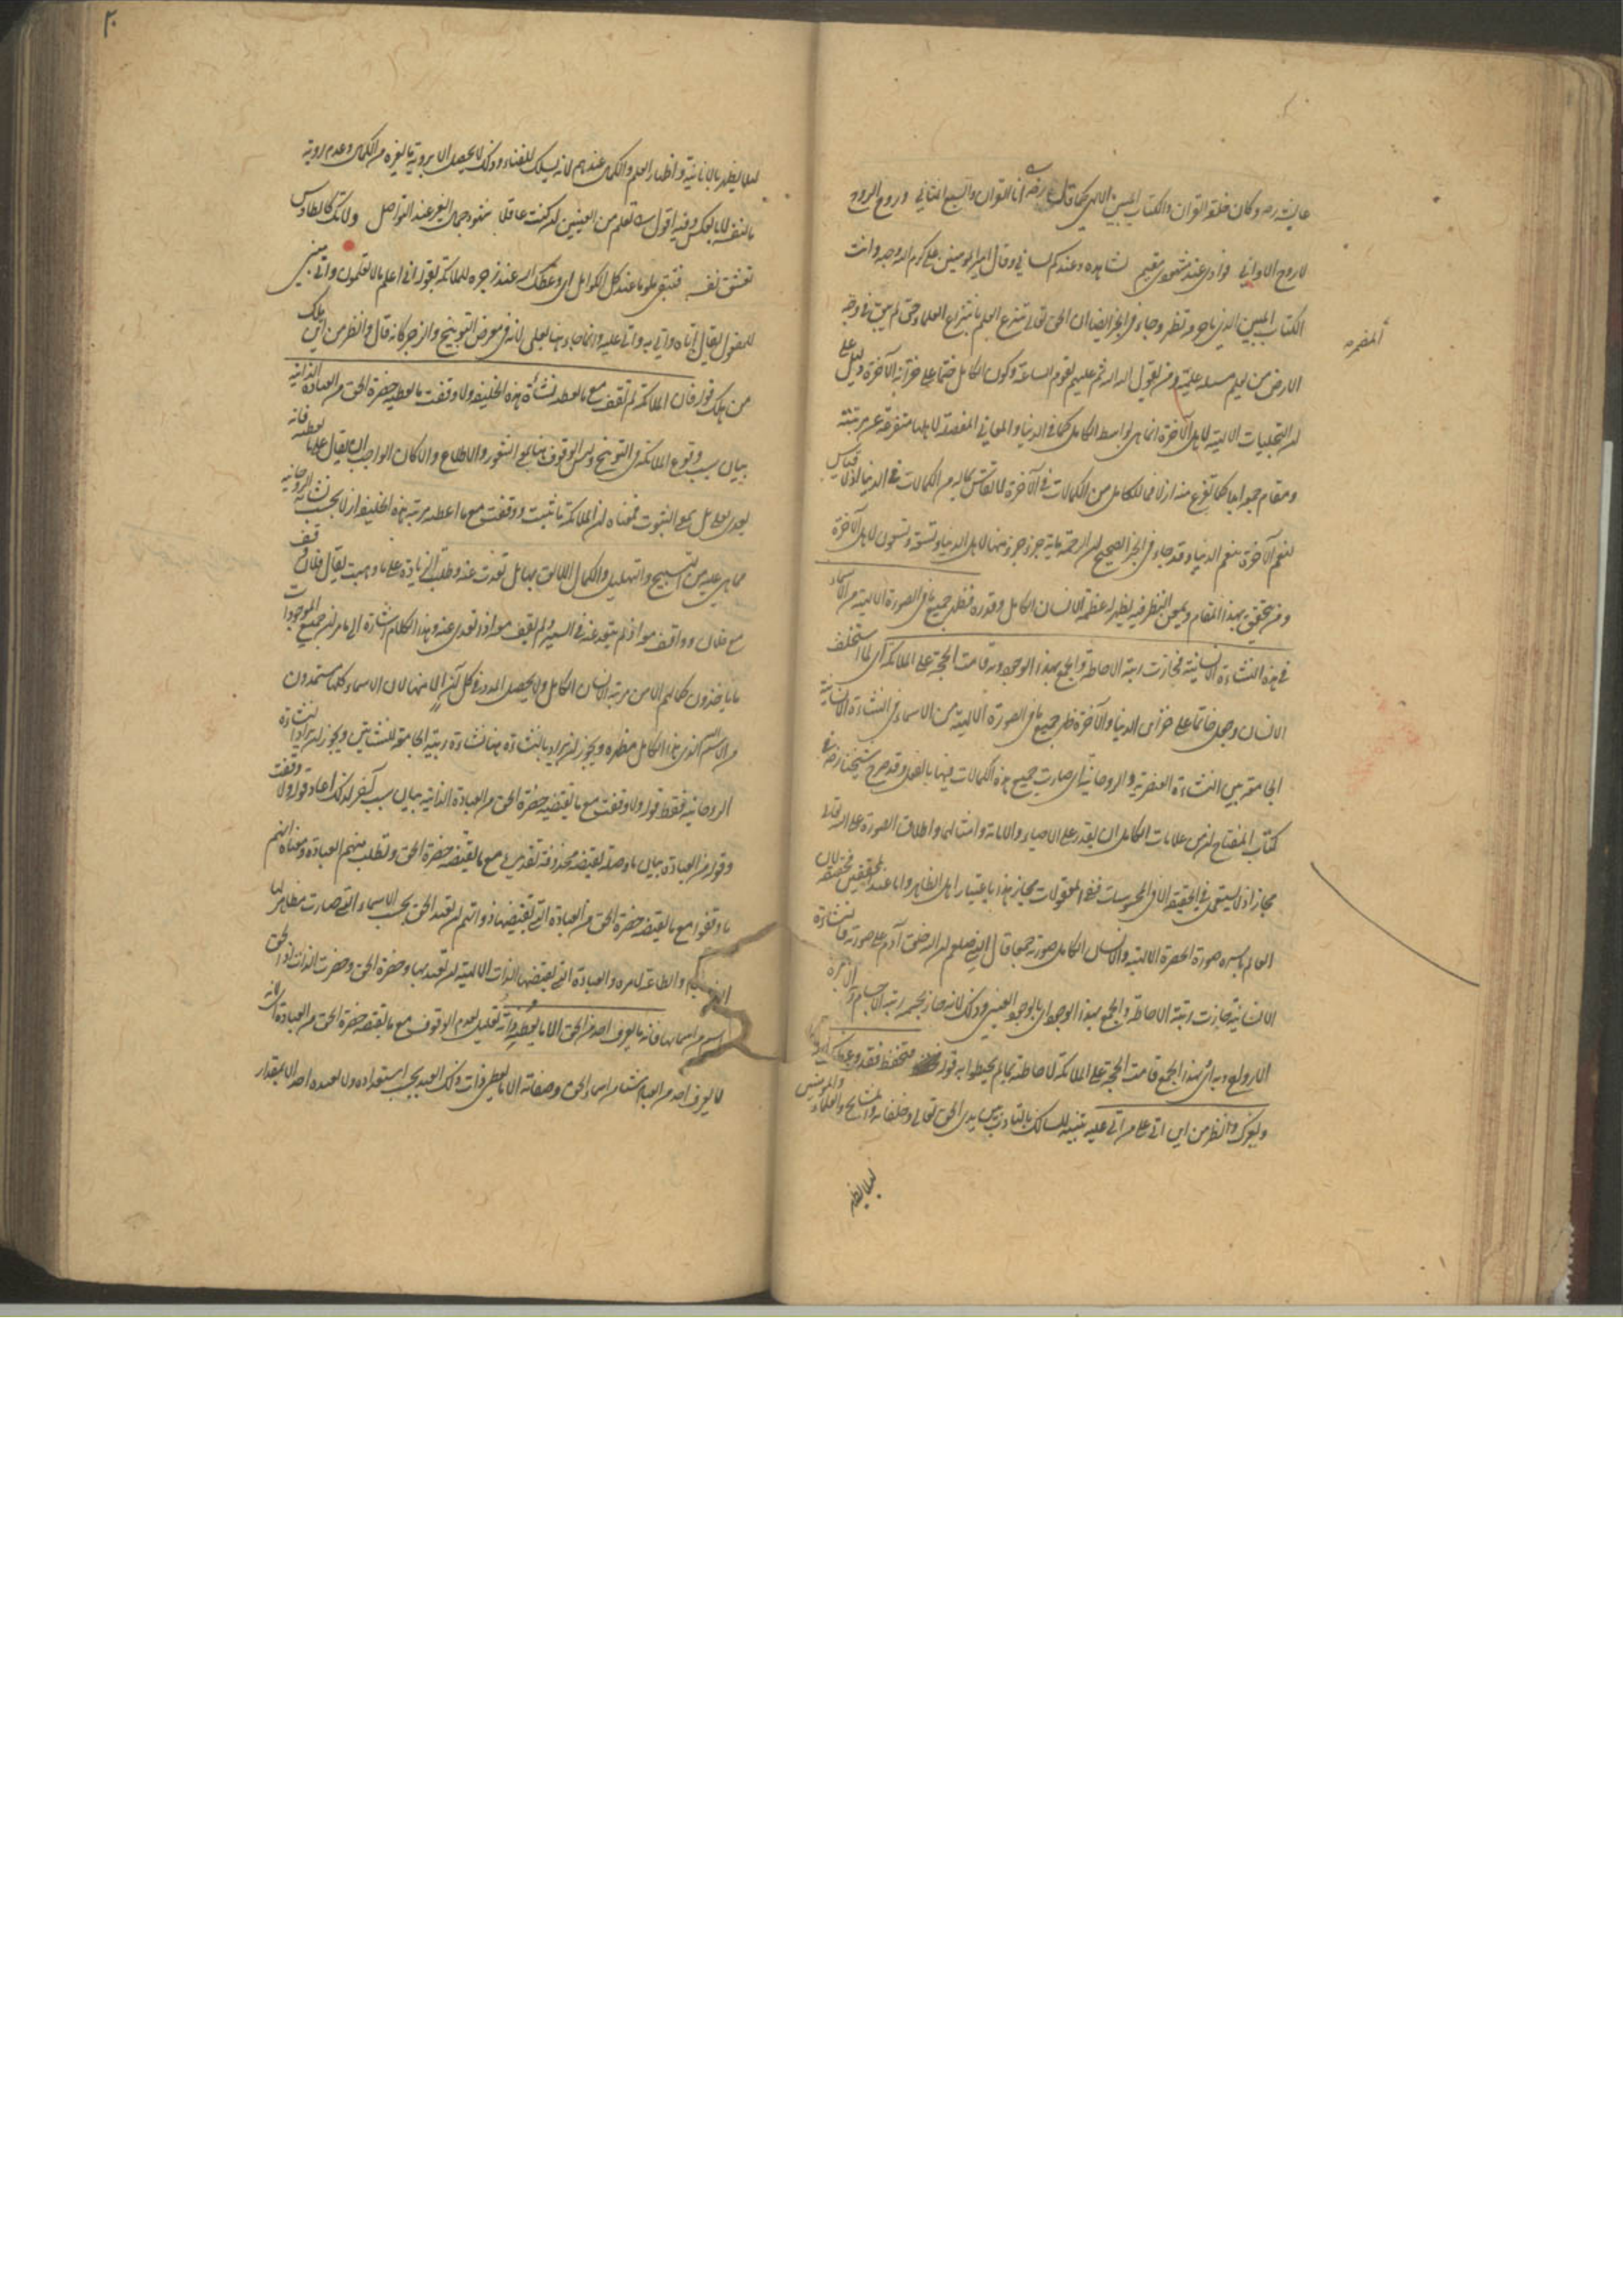 عايشه رضه وكان خلقه القرآن والكتاب المبين الالهي كما قال الشيخ رضه انا القرآن والسبع المثاني وروح الروح
لا روح الاواني فؤادي عند مشهودي مقيم نشاهده وعندكم لساني وقال امير المؤمنين علي كرم الله وجهه وانت
الكتاب المبين الذي باحرفه تظهر وجاء في الخبر ايضا ان الحق تعالى ينتزع العلم بانتزاع العلماء حتى لم يبق في وجه
المضمر
الارض من يعلم مسئلة علمية ومن يقول الله الله ثم عليهم تقوم الساعة وكون الكامل ختما على خزانة الآخرة دليل على
ان التجليات الالهية لاهل الآخرة انما هي بواسطة الكامل كما في الدنيا والمعاني المفصلة لاهلها متفرعة عن مرتبته
ومقام جمعه ابدا كما تفرع منه ازلا فما للكامل من الكمالات في الآخرة لا يقاس بماله من الكمالات في الدنيا اذ لا قياس
لنعم الآخرة بنعم الدنيا وقد جاء في الخبر الصحيح ان الرحمة ماية جزء جزء منها لاهل الدنيا وتسعة وتسعون لاهل الآخرة
ومن يتحقق بهذا المقام ويمعن النظر فيه يظهر له عظمة الانسان الكامل وقدره فظهر جميع ما في الصورة الالهية من الاسماء
في هذه النشاءة الانسانية فحازت رتبة الاحاطة والجمع بهذا الوجود وبه قامت الحجة على الملائكة اي لما استخلف
الانسان وجعل خاتما على خزاين الدنيا والآخرة ظهر جميع ما في الصورة الالهية من الاسماء في النشاءة الانسانية
الجامعة بين النشاءة العنصرية والروحانية اي صارت جميع هذه الكمالات فيها بالفعل وقد صرح شيخنا رضه في
كتاب المفتاح ان من علامات الكامل ان يقدر على الاحياء والاماتة وامثالهما واطلاق الصورة على الله تعالى
مجازا اذ لا يستعمل في الحقيقة الا في المحسوسات ففي المعقولات مجاز هذا باعتبار اهل الظاهر واما عند المحققين فحقيقة لان
العالم باسره صورة الحضرة الالهية والانسان الكامل صورته جمعا قال النبي صلعم ان الله خلق آدم على صورته فالنشاءة
الانسانية حازت رتبة الاحاطة والجمع بهذا الوجود اي بالوجود العيني وذلك لانه حاز بجسمه رتبة الاجسام وبروحه رتبة
الارواح وبه اي بهذا الجمع قامت الحجة على الملائكة لاحاطته بما لم يحيطوا به قوله فتحفظ فقد وعظك الله
بغيرك وانظر من اين اتى على من اتى عليه تنبيه للسالك بالتأدب بين يدي الحق تعالى وخلفائه والمشايخ والعلماء والمؤمنين
ليلا يظهر
٢٠
ليلا يظهر بالانانية واظهار العلم والكمال عندهم لانه يسلك للفناء وذلك لا يحصل الا برؤية ما لغيره من الكمال وعدم رؤية
ما لنفسه لا بالعكس وفيه اقول تعلم من العينين ان كنت عاقلا شهود جمال الغير عند التواصل ولا تك كالطاوس
تعشق نفسه فتبقى ملوما عند كل الكوامل اي وعظك الله عند زجره للملائكة بقوله اني اعلم ما لا تعلمون واتي مبني
للمفعول يقال اتاه واتي به واتي عليه وانما جاء هنا بعلى لانه في معرض التوبيخ والزجر كانه قال وانظر من اين هلك
من هلك قوله فان الملائكة لم تقف مع ما تعطيه نشأة هذه الخليفة ولا وقفت مع ما تقتضيه حضرة الحق من العبادة الذاتية
بيان سبب وقوع الملائكة في التوبيخ وليس الوقوف هنا بمعنى الشعور والاطلاع والا كان الواجب ان يقال على ما تعطيه فانه
يعدى بعلى بل بمعنى الثبوت فمعناه ان الملائكة ما ثبتت وما وقفت مع ما اعطته مرتبة هذه الخليفة ازلا بحسب نشأته الروحانية
مما هي عليه من التسبيح والتهليل والكمال اللائق بها بل تعدت عنه وطلبت الزيادة على ما وهبت يقال فلان وقف
مع فلان وواقف معه اذا لم يتعد عنه في السير ولم يقف معه اذا تعدى عنه وهذا الكلام اشارة الى ما مر ان جميع الموجودات
ما ياخذون كمالهم الا من مرتبة الانسان الكامل ولا يحصل المدد في كل آن الا منها لان الاسماء كلها يستمدون
من الاسم الذي هذا الكامل مظهره ويجوز ان يراد بالنشاءة هنا نشاءة رتبته الجامعة للنشاتين ويجوز ان يراد نشاءته
الروحانية فقط قوله ولا وقفت مع ما تقتضيه حضرة الحق من العبادة الذاتية بيان سبب آخر لذلك اعاد قوله ولا وقفت
وقوله من العبادة بيان ما وصلة يقتضيه محذوفة تقديره مع ما يقتضيه حضرة الحق وتطلب منهم العبادة ومعناه انهم
ما وقفوا مع ما يقتضيه حضرة الحق من العبادة التي تقتضيها ذواتهم ان تعبد الحق بحسب الاسماء التي صارت مظاهر لها
والطاعة لامره والعبادة التي يقتضيها الذات الالهية ان تعبد بها وحضرة الحق وحضرت الذات اذ الحق
اسم من اسمائها فانه ما يعرف احد من الحق الا ما تعطيه ذاته تعليل لعدم الوقوف مع ما يقتضيه حضرة الحق من العبادة اي لانه
لا يعرف احد من العباد شيئا من اسماء الحق وصفاته الا ما يعطي ذات ذلك العبد بحسب استعداده ولا يعبده احد الا بمقدار